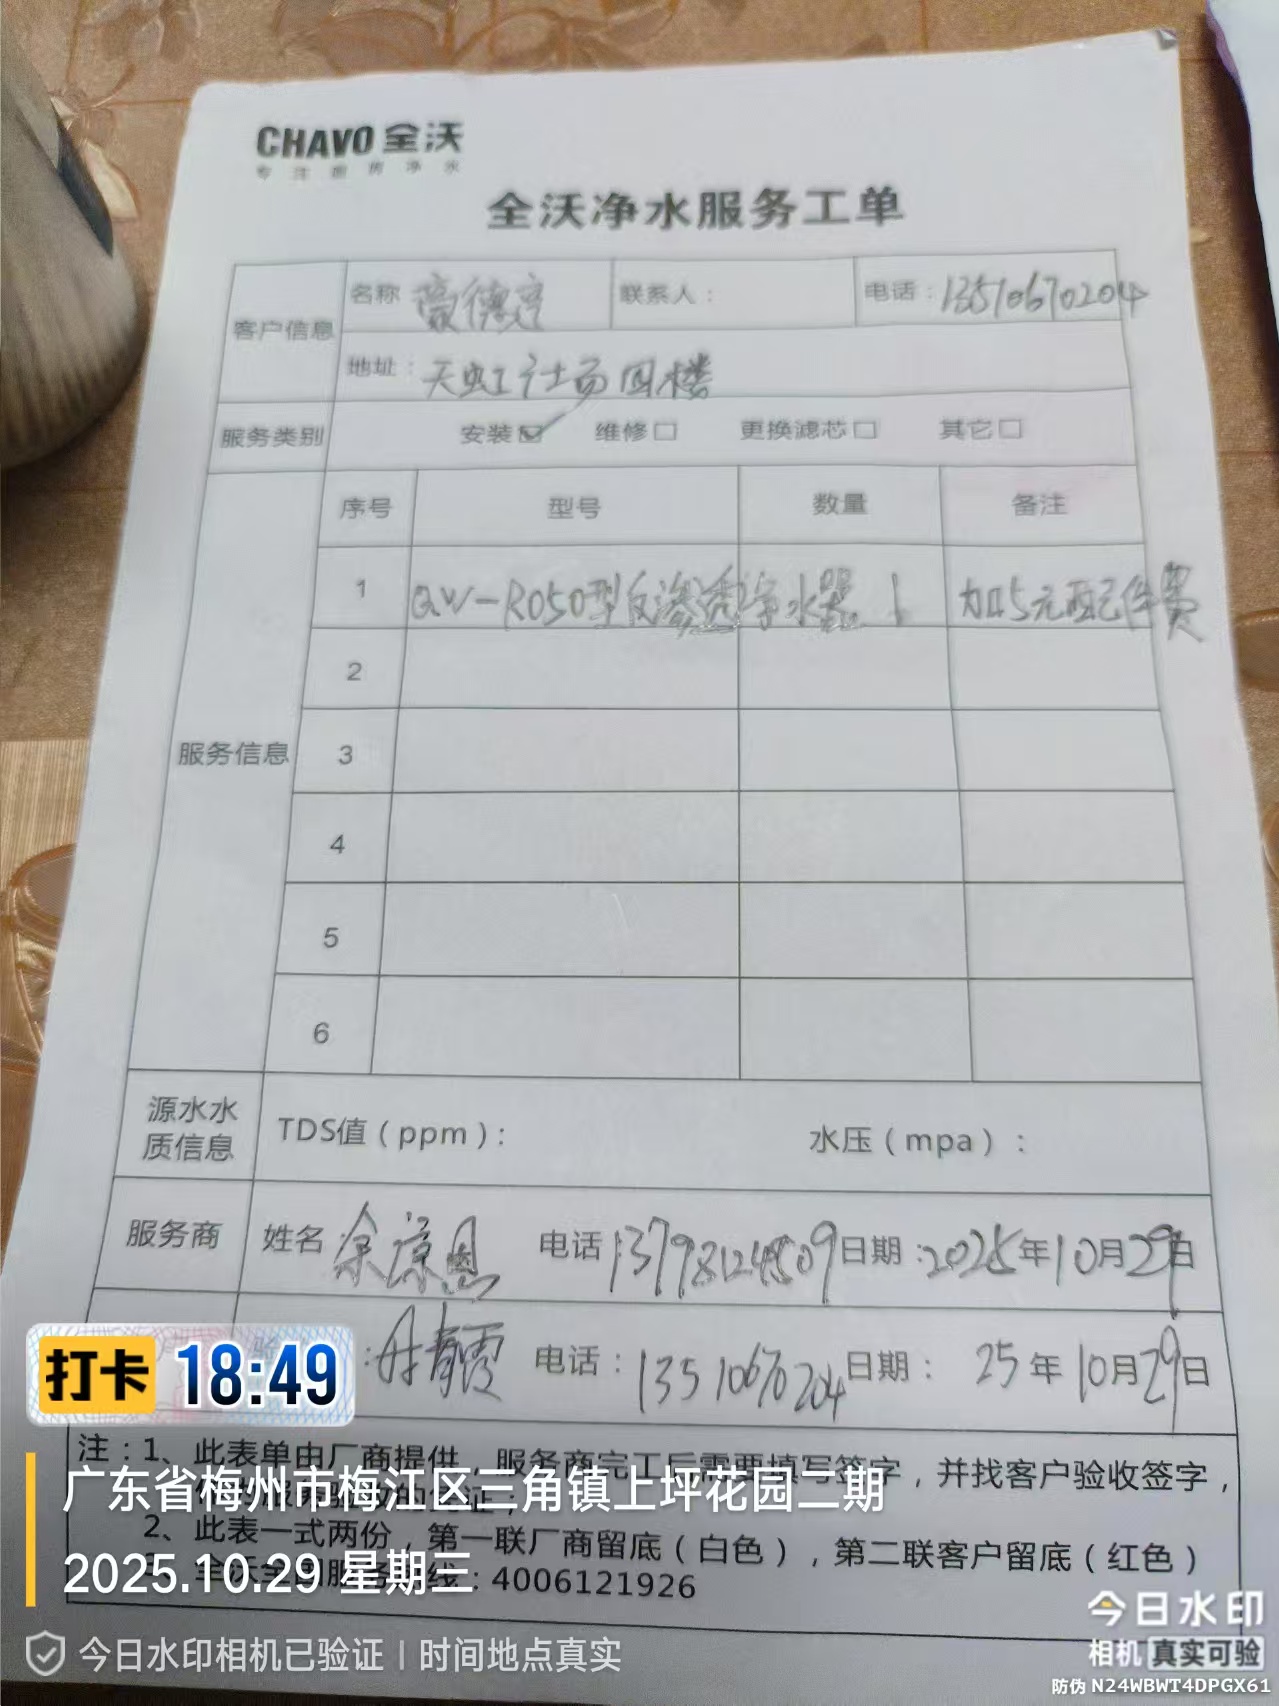 CHAVO 全沃
专注厨房净水
全沃净水服务工单
客户信息
名称 德亨
联系人：
电话：13510670204
地址：天虹计场四楼
服务类别
安装☑ 维修□ 更换滤芯□ 其它□
服务信息
序号 型号 数量 备注
1 QW-RO50型反渗透净水器 1 加45元配件费
2
3
4
5
6
源水水质信息
TDS值（ppm）：
水压（mpa）：
服务商
姓名 余凉恩 电话 13798124509 日期：2025年10月29日
电话：13510670204 日期： 25年10月29日
注：1、此表单由厂商提供，服务商完工后需要填写签字，并找客户验收签字，
2、此表一式两份，第一联厂商留底（白色），第二联客户留底（红色）
4006121926
打卡 18:49
广东省梅州市梅江区三角镇上坪花园二期
2025.10.29 星期三
今日水印相机已验证 | 时间地点真实
今日水印
相机 真实可验
防伪 N24WBWT4DPGX61